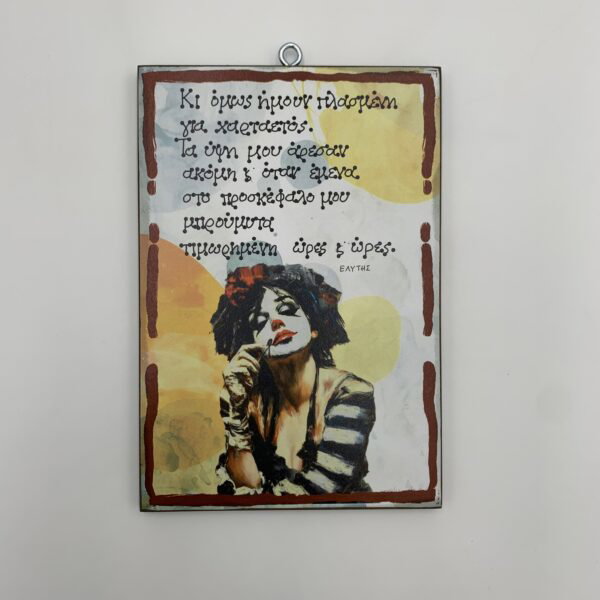 Κι όμως ήμουν πλασμένη
για χαρταετός.
Τα ύψη μου άρεσαν
ακόμη ϗ όταν έμενα
στο προσκέφαλο μου
μπρούμυτα
τιμωρημένη ώρες ϗ ώρες.
ΕΛΥΤΗΣ